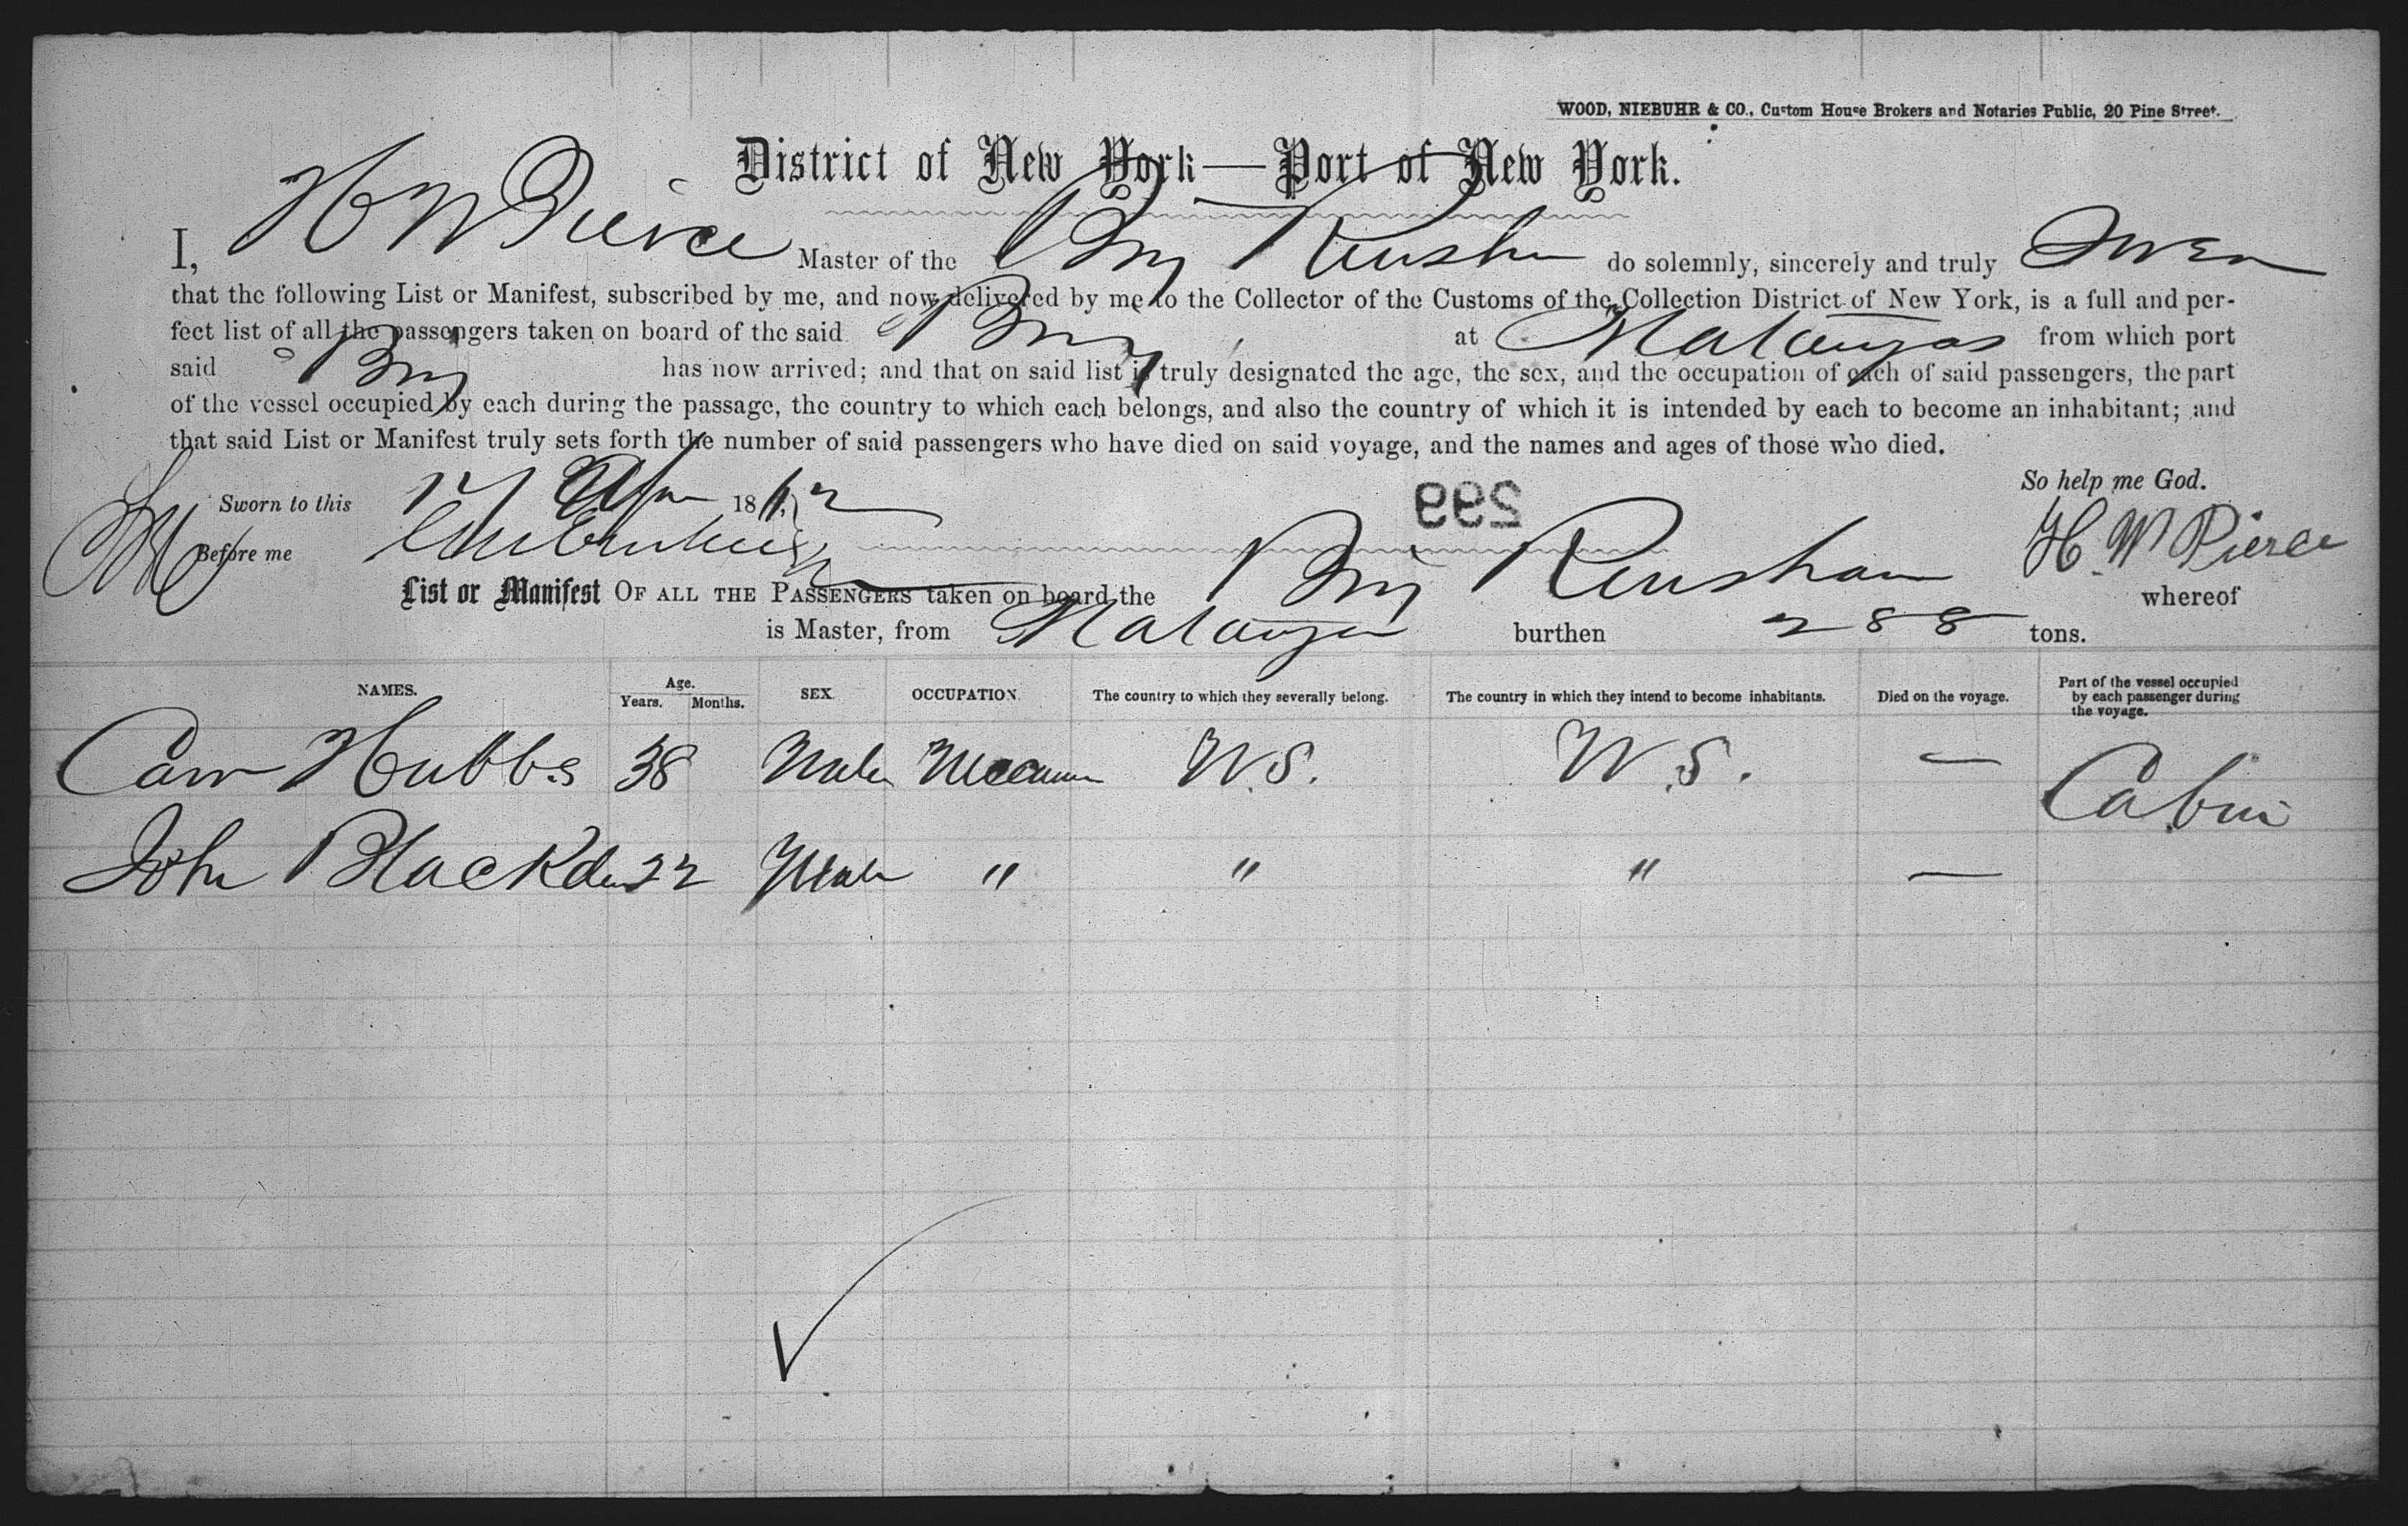 WOOD, NIEBUHR & CO., Custom House Brokers and Notaries Public, 20 Pine Street.
District of New York—Port of New York.
I, H W Pierce Master of the Brig Renshaw do solemnly, sincerely and truly Swear
that the following List or Manifest, subscribed by me, and now delivered by me to the Collector of the Customs of the Collection District of New York, is a full and per-
fect list of all the passengers taken on board of the said Brig at Matanzas from which port
said Brig has now arrived; and that on said list is truly designated the age, the sex, and the occupation of each of said passengers, the part
of the vessel occupied by each during the passage, the country to which each belongs, and also the country of which it is intended by each to become an inhabitant; and
that said List or Manifest truly sets forth the number of said passengers who have died on said voyage, and the names and ages of those who died.
So help me God.
Sworn to this 17 Apr 1862
299
Before me
H. W Pierce
List or Manifest OF ALL THE PASSENGERS taken on board the Brig Renshaw whereof
is Master, from Matanzas burthen 288 tons.
NAMES. Age. Years. Months. SEX. OCCUPATION. The country to which they severally belong. The country in which they intend to become inhabitants. Died on the voyage. Part of the vessel occupied by each passenger during the voyage.
Hubbs 38 Male U.S. U.S. — Cabin
John 22 Male " " " —